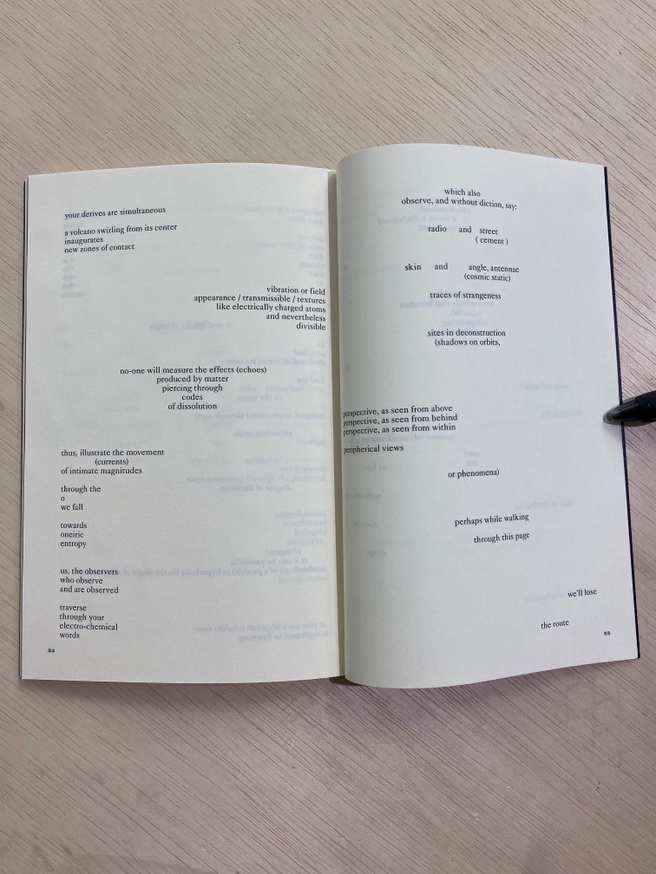 your derives are simultaneous
a volcano swirling from its center
inaugurates
new zones of contact
vibration or field
appearance / transmissible / textures
like electrically charged atoms
and nevertheless
divisible
no-one will measure the effects (echoes)
produced by matter
piercing through
codes
of dissolution
thus, illustrate the movement
(currents)
of intimate magnitudes
through the
o
we fall
towards
oneiric
entropy
us, the observers
who observe
and are observed
traverse
through your
electro-chemical
words
which also
observe, and without diction, say:
radio and street
( cement )
skin and angle, antennae
(cosmic static)
traces of strangeness
sites in deconstruction
(shadows on orbits,
perspective, as seen from above
perspective, as seen from behind
perspective, as seen from within
peripherical views
or phenomena)
perhaps while walking
through this page
we'll lose
the route